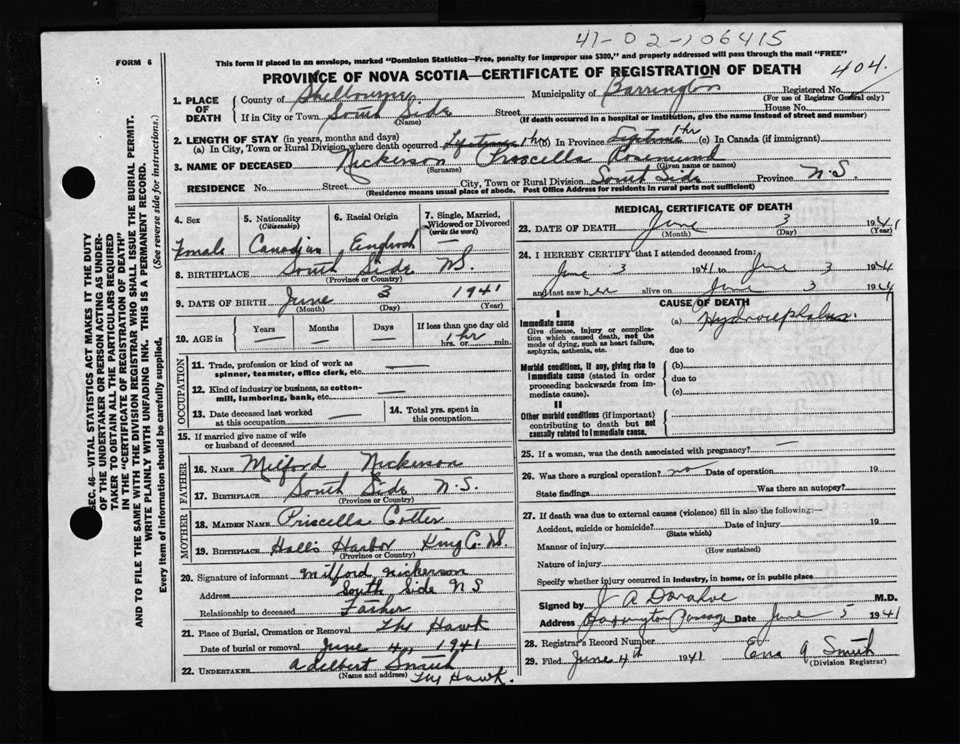 41-02-106415
FORM 6
This form if placed in an envelope, marked "Dominion Statistics—Free, penalty for improper use $300," and properly addressed will pass through the mail "FREE"
PROVINCE OF NOVA SCOTIA—CERTIFICATE OF REGISTRATION OF DEATH
404.
1. PLACE OF DEATH
County of Shelbourne Municipality of Barrington Registered No.
(For use of Registrar General only)
If in City or Town South Side Street House No.
(Name) (If death occurred in a hospital or institution, give the name instead of street and number)
2. LENGTH OF STAY (in years, months and days)
(a) In City, Town or Rural Division where death occurred 1 hr (b) In Province Lifetime 1 hr (c) In Canada (if immigrant)
3. NAME OF DECEASED Nickerson Priscilla Rosemund
(Surname) (Given name or names)
RESIDENCE No. Street City, Town or Rural Division South Side Province N.S.
(Residence means usual place of abode. Post Office Address for residents in rural parts not sufficient)
4. Sex
Female
5. Nationality
(Citizenship)
Canadian
6. Racial Origin
English
7. Single, Married, Widowed or Divorced
(write the word)
—
8. BIRTHPLACE South Side N.S.
(Province or Country)
9. DATE OF BIRTH June 3 1941
(Month) (Day) (Year)
10. AGE in
Years Months Days If less than one day old
— — — 1 hr
hrs. or min.
OCCUPATION
11. Trade, profession or kind of work as spinner, teamster, office clerk, etc. —
12. Kind of industry or business, as cotton-mill, lumbering, bank, etc. —
13. Date deceased last worked at this occupation —
14. Total yrs. spent in this occupation
15. If married give name of wife or husband of deceased
FATHER
16. NAME Milford Nickerson
17. BIRTHPLACE South Side N.S.
(Province or Country)
MOTHER
18. MAIDEN NAME Priscilla Cotter
19. BIRTHPLACE Hall's Harbor King Co. N.S.
(Province or Country)
20. Signature of informant Milford Nickerson
Address South Side N S
Relationship to deceased Father
21. Place of Burial, Cremation or Removal The Hawk
Date of burial or removal June 4, 1941
22. UNDERTAKER Adelbert Smith
(Name and address) The Hawk.
MEDICAL CERTIFICATE OF DEATH
23. DATE OF DEATH June 3 1941
(Month) (Day) (Year)
24. I HEREBY CERTIFY that I attended deceased from:
June 3 1941 to June 3 194
and last saw her alive on June 3 194
CAUSE OF DEATH
I
Immediate cause
Give disease, injury or complication which caused death, not the mode of dying, such as heart failure, asphyxia, asthenia, etc.
(a) Hydrocephalus
due to
Morbid conditions, if any, giving rise to immediate cause (stated in order proceeding backwards from immediate cause).
(b)
due to
(c)
II
Other morbid conditions (if important) contributing to death but not causally related to immediate cause.
25. If a woman, was the death associated with pregnancy? —
26. Was there a surgical operation? no Date of operation 19
State findings Was there an autopsy?
27. If death was due to external causes (violence) fill in also the following:—
Accident, suicide or homicide? Date of injury 19
(State which)
Manner of injury
(How sustained)
Nature of injury
Specify whether injury occurred in industry, in home, or in public place
Signed by J A Donahoe M.D.
Address Barrington Passage Date June 5 1941
28. Registrar's Record Number
29. Filed June 4th 1941 Ena A Smith
(Division Registrar)
SEC. 46—VITAL STATISTICS ACT MAKES IT THE DUTY
OF THE UNDERTAKER OR PERSON ACTING AS UNDER-
TAKER TO OBTAIN ALL THE PARTICULARS REQUIRED
IN THE "CERTIFICATE OF REGISTRATION OF DEATH"
AND TO FILE THE SAME WITH THE DIVISION REGISTRAR WHO SHALL ISSUE THE BURIAL PERMIT.
WRITE PLAINLY WITH UNFADING INK. THIS IS A PERMANENT RECORD.
Every item of information should be carefully supplied. (See reverse side for instructions.)